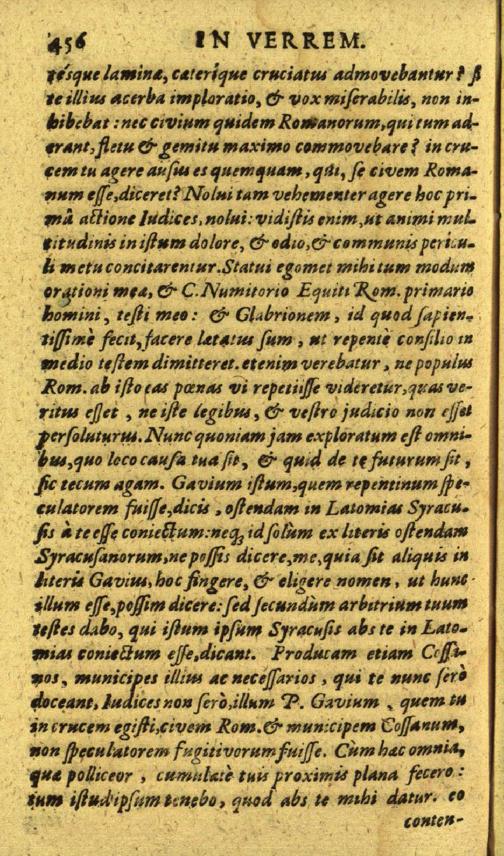 456 IN VERREM.
tésque laminæ, cæterique cruciatus admovebantur? si
te illius acerba imploratio, & vox miserabilis, non in-
hibebat: nec civium quidem Romanorum, qui tum ad-
erant, fletu & gemitu maximo commovebare? in cru-
cem tu agere ausus es quemquam, qui, se civem Roma-
num esse, diceret? Nolui tam vehementer agere hoc pri-
mâ actione Iudices, nolui: vidistis enim, ut animi mul-
titudinis in istum dolore, & odio, & communis pericu-
li metu concitarentur. Statui egomet mihi tum modum
orationi meæ, & C. Numitorio Equiti Rom. primario
homini, testi meo: & Glabrionem, id quod sapien-
tissimè fecit, facere lætatus sum, ut repentè consilio in
medio testem dimitteret. etenim verebatur, ne populus
Rom. ab isto eas pœnas vi repetiisse videretur, quas ve-
ritus esset, ne iste legibus, & vestro judicio non esset
persoluturus. Nunc quoniam jam exploratum est omni-
bus, quo loco causa tua sit, & quid de te futurum sit,
sic tecum agam. Gavium istum, quem repentinum spe-
culatorem fuisse, dicis, ostendam in Latomias Syracu-
sis à te esse coniectum: neq, id solùm ex literis ostendam
Syracusanorum, ne possis dicere, me, quia sit aliquis in
literis Gavius, hoc fingere, & eligere nomen, ut hunc
illum esse, possim dicere: sed secundùm arbitrium tuum
testes dabo, qui istum ipsum Syracusis abs te in Lato-
mias coniectum esse, dicant. Producam etiam Cossa-
nos, municipes illius ac necessarios, qui te nunc serò
doceant, Iudices non serò, illum P. Gavium, quem tu
in crucem egisti, civem Rom. & municipem Cossanum,
non speculatorem fugitivorum fuisse. Cùm hæc omnia,
quæ polliceor, cumulatè tuis proximis plana fecero:
tum istud ipsum tenebo, quod abs te mihi datur. eo
conten-